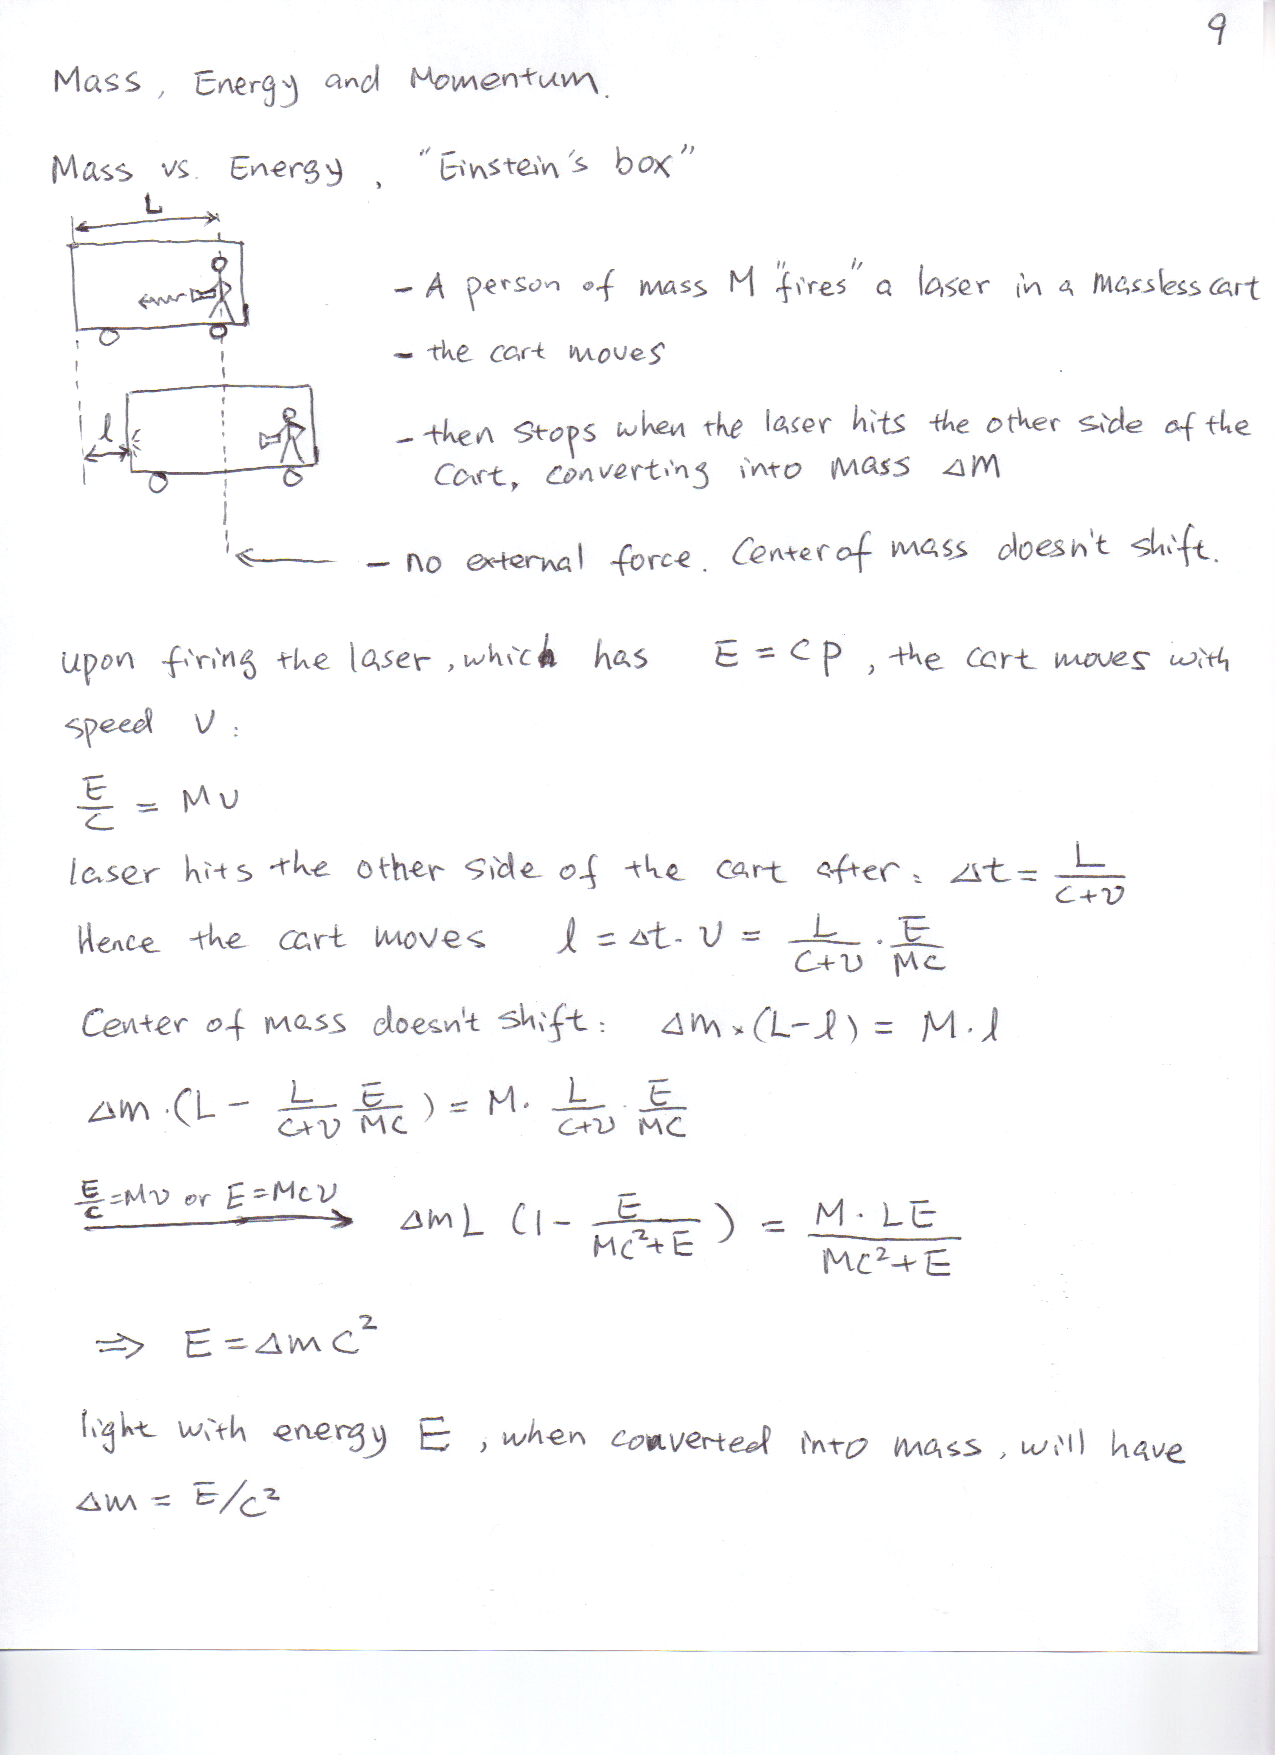 9
Mass, Energy and Momentum.
Mass vs. Energy, "Einstein's box"
L
- A person of mass M "fires" a laser in a massless cart
- the cart moves
l
- then stops when the laser hits the other side of the
cart, converting into mass ΔM
- no external force. Center of mass doesn't shift.
upon firing the laser, which has E = cp, the cart moves with
speed v:
E/c = Mv
laser hits the other side of the cart after: Δt = L/(c+v)
Hence the cart moves l = Δt · v = L/(c+v) · E/(Mc)
Center of mass doesn't shift: Δm × (L-l) = M · l
Δm · (L - L/(c+v) E/(Mc)) = M · L/(c+v) · E/(Mc)
E/c = Mv or E = Mcv → ΔmL (1 - E/(Mc²+E)) = M · LE/(Mc²+E)
⇒ E = Δmc²
light with energy E, when converted into mass, will have
Δm = E/c²